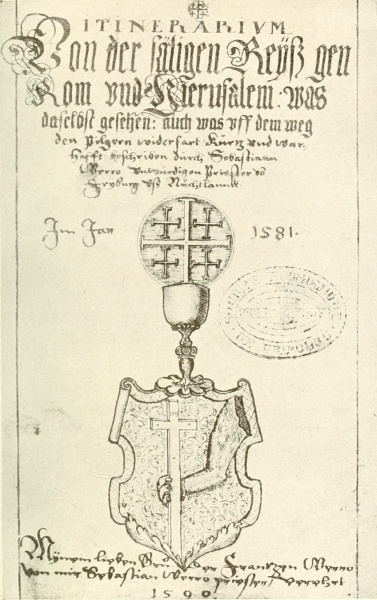 ITINERARIUM
Von der säligen Reyß gen
Rom und Hierusalem: was
daselbst gesehen: auch was uff dem weg
den Pilgern widerfart kurtz und war
hafft geschriben durch Sebastianum
Werro unwürdigen Priester vō
Fryburg uß Nüchtlannd
Im Jar 1581.
Mynem lieben Brüder Frantzen Werro
von mir Sebastian Werro priester verehet
1590